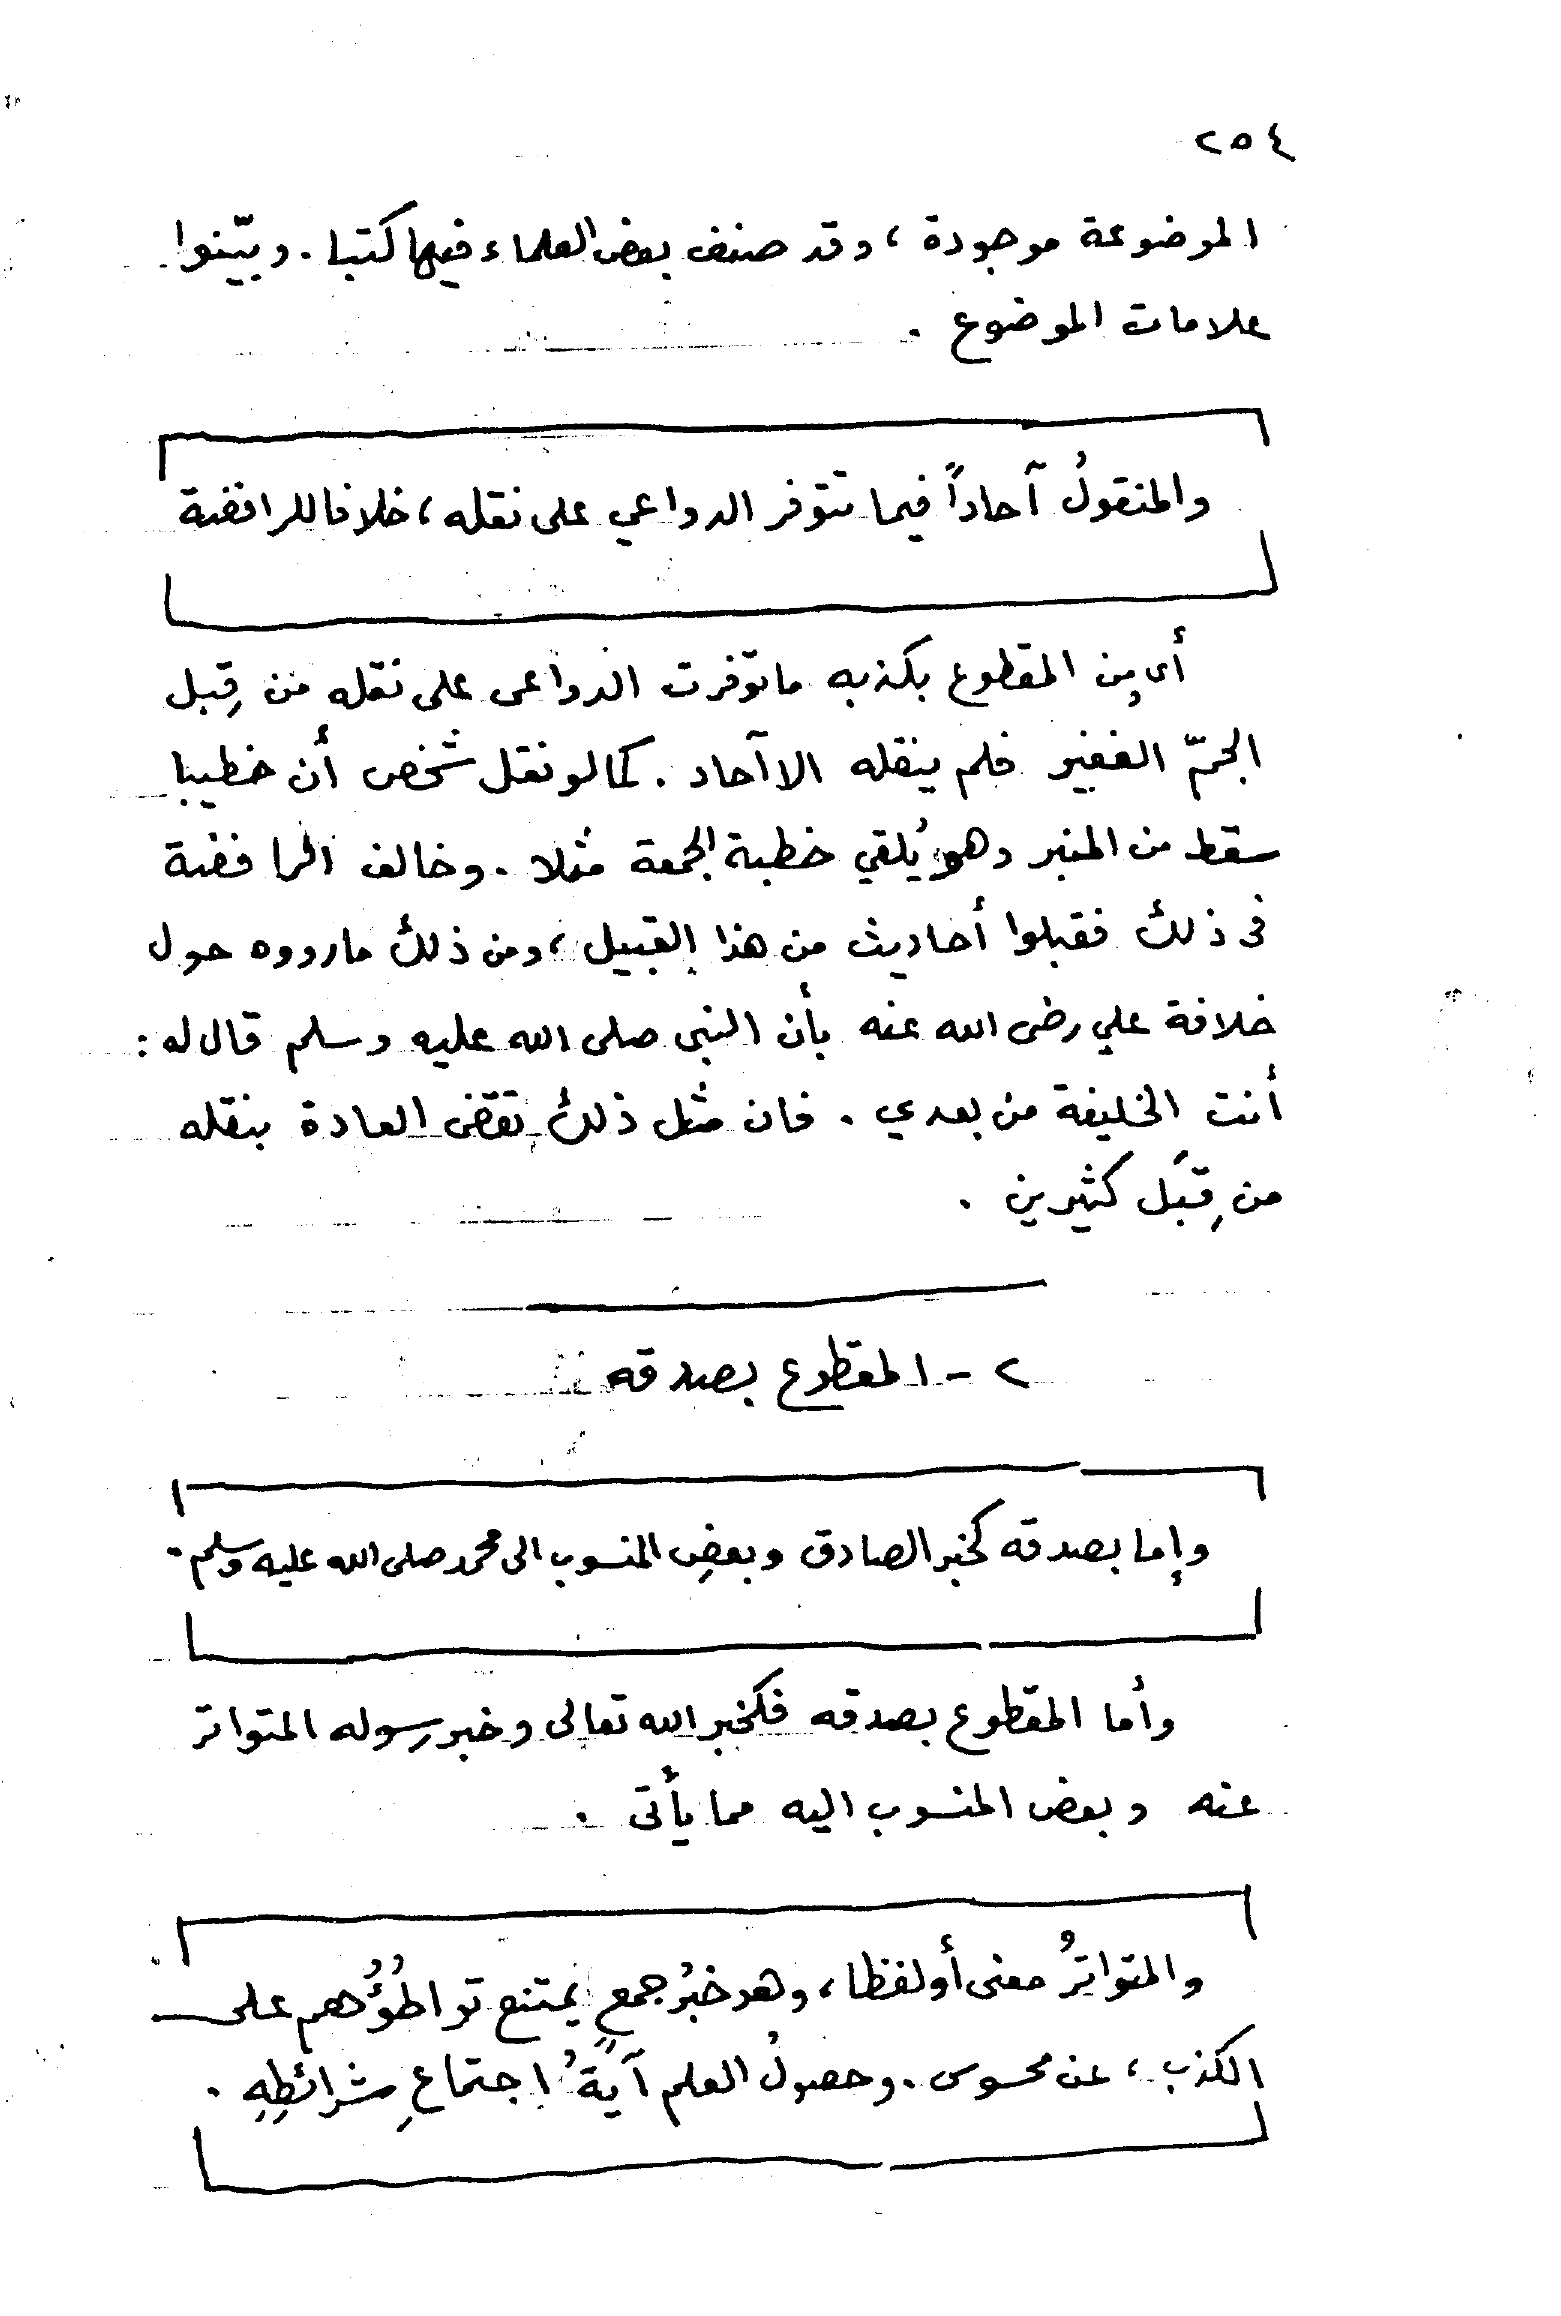 ٢٥٤
الموضوعة موجودة ، وقد صنف بعض العلماء فيها كتبا . وبيّنوا
علامات الموضوع .
والمنقولُ آحاداً فيما تتوفر الدواعي على نقله ، خلافا للرافضة
أى من المقطوع بكذبه ما توفرت الدواعى على نقله من قِبل
الجمّ الغفير فلم ينقله الا آحاد . كما لو نقل شخص أن خطيبا
سقط من المنبر وهو يُلقي خطبة الجمعة مثلا . وخالف الرافضة
فى ذلك فقبلوا أحاديث من هذا القبيل ، ومن ذلك مارووه حول
خلافة علي رضى الله عنه بأن النبى صلى الله عليه وسلم قال له :
أنت الخليفة من بعدي . فان مثل ذلك تقضى العادة بنقله
من قِبَل كثيرين .
٢ - المقطوع بصدقه
وإما بصدقه كخبر الصادق وبعضِ المنسوب الى محمد صلى الله عليه وسلم .
وأما المقطوع بصدقه فكخبر الله تعالى وخبر رسوله المتواتر
عنه وبعض المنسوب اليه مما يأتى .
والمتواترُ معنى أو لفظا ، وهو خبرُ جمعٍ يمتنع تواطُؤُهم على
الكذب ، عن محسوس . وحصولُ العلم آيةُ اجتماعِ شرائطِهِ .